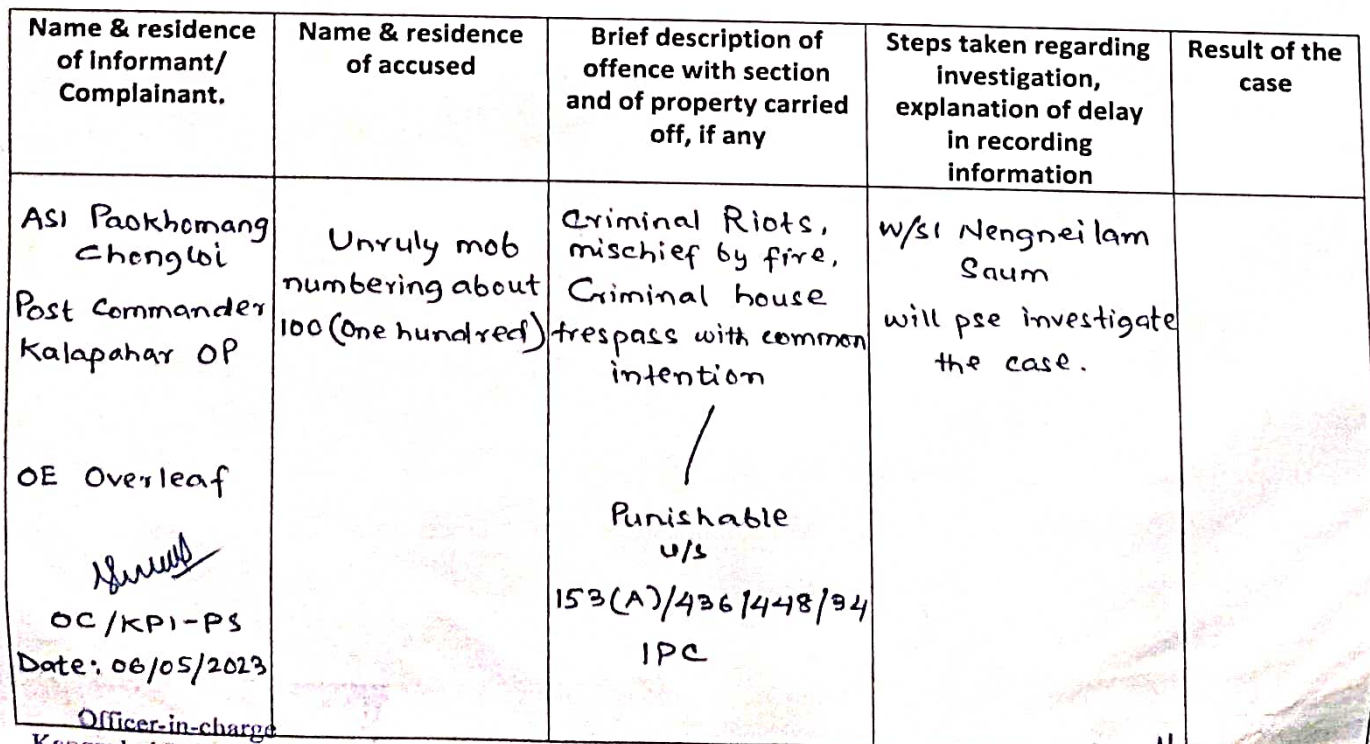 Name & residence
of informant/
Complainant.
Name & residence
of accused
Brief description of
offence with section
and of property carried
off, if any
Steps taken regarding
investigation,
explanation of delay
in recording
information
Result of the
case
ASI Paokhomang
Chongloi
Post Commander
Kalapahar OP
OE Overleaf
OC/KPI-PS
Date: 06/05/2023
Officer-in-charge
Unruly mob
numbering about
100 (One hundred)
Criminal Riots,
mischief by fire,
Criminal house
trespass with common
intention
Punishable
u/s
153(A)/436/448/34
IPC
W/SI Nengneilam
Saum
will pse investigate
the case.